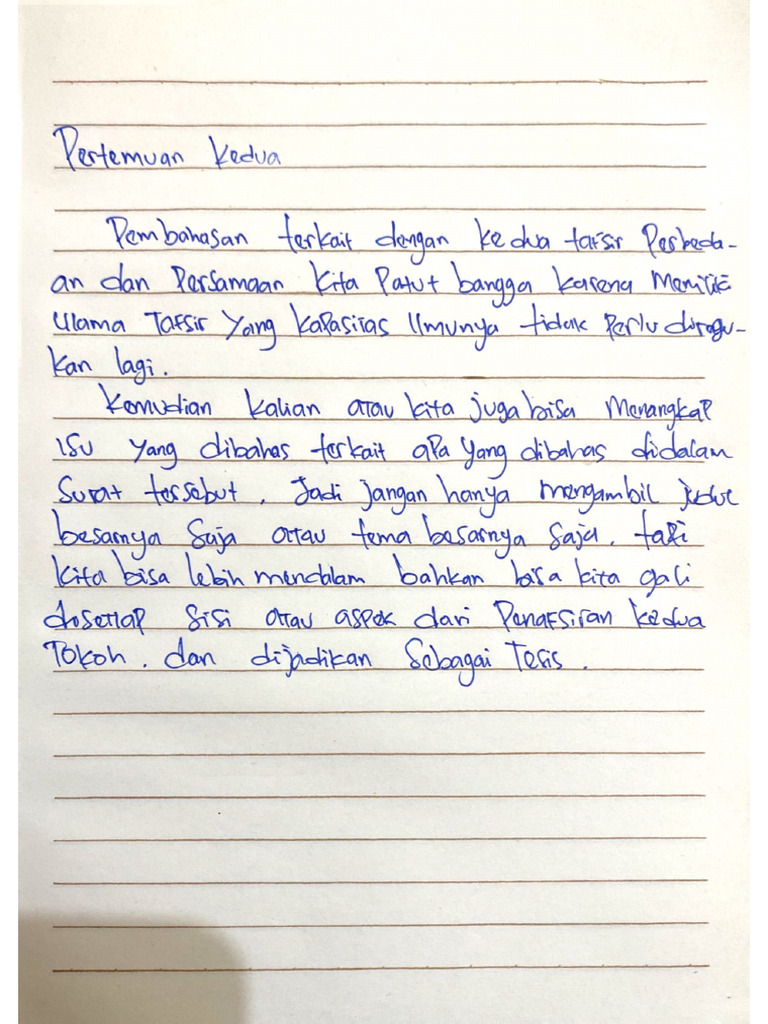 Pertemuan Kedua
Pembahasan terkait dengan kedua tafsir Perbeda-
an dan Persamaan kita Patut bangga karena Memilik
Ulama Tafsir Yang kapasitas Ilmunya tidak Perlu diragu-
kan lagi.
Kemudian kalian atau kita juga bisa Menangkap
isu yang dibahas terkait apa yang dibahas didalam
Surat tersebut. Jadi jangan hanya mengambil judul
besarnya Saja atau tema besarnya Saja. tapi
kita bisa lebih mendalam bahkan bisa kita gali
disetiap sisi atau aspek dari Penafsiran kedua
Tokoh. dan dijadikan Sebagai Tesis.